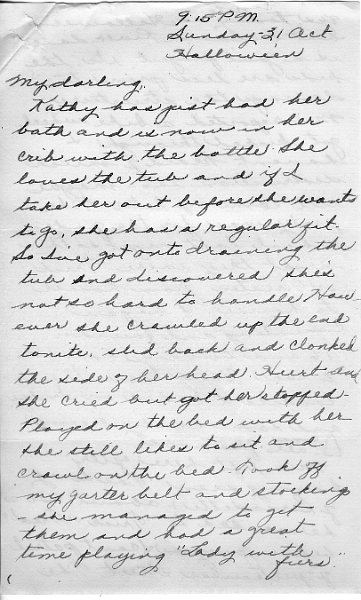 9:15 P.M.
Sunday - 31 Oct
Halloween
My darling,
Kathy has just had her
bath and is now in her
crib with the bottle. She
loves the tub and if I
take her out before she wants
to go, she has a regular fit.
So I've got onto draining the
tub and discovered she's
not so hard to handle. How
ever she crawled up the end
tonite, slid back and clonked
the side of her head. Hurt and
she cried but got her stopped -
Played on the bed with her
she still likes to sit and
crawl on the bed. Took off
my garter belt and stocking
- she managed to get
them and had a great
time playing "Lady with
furs."